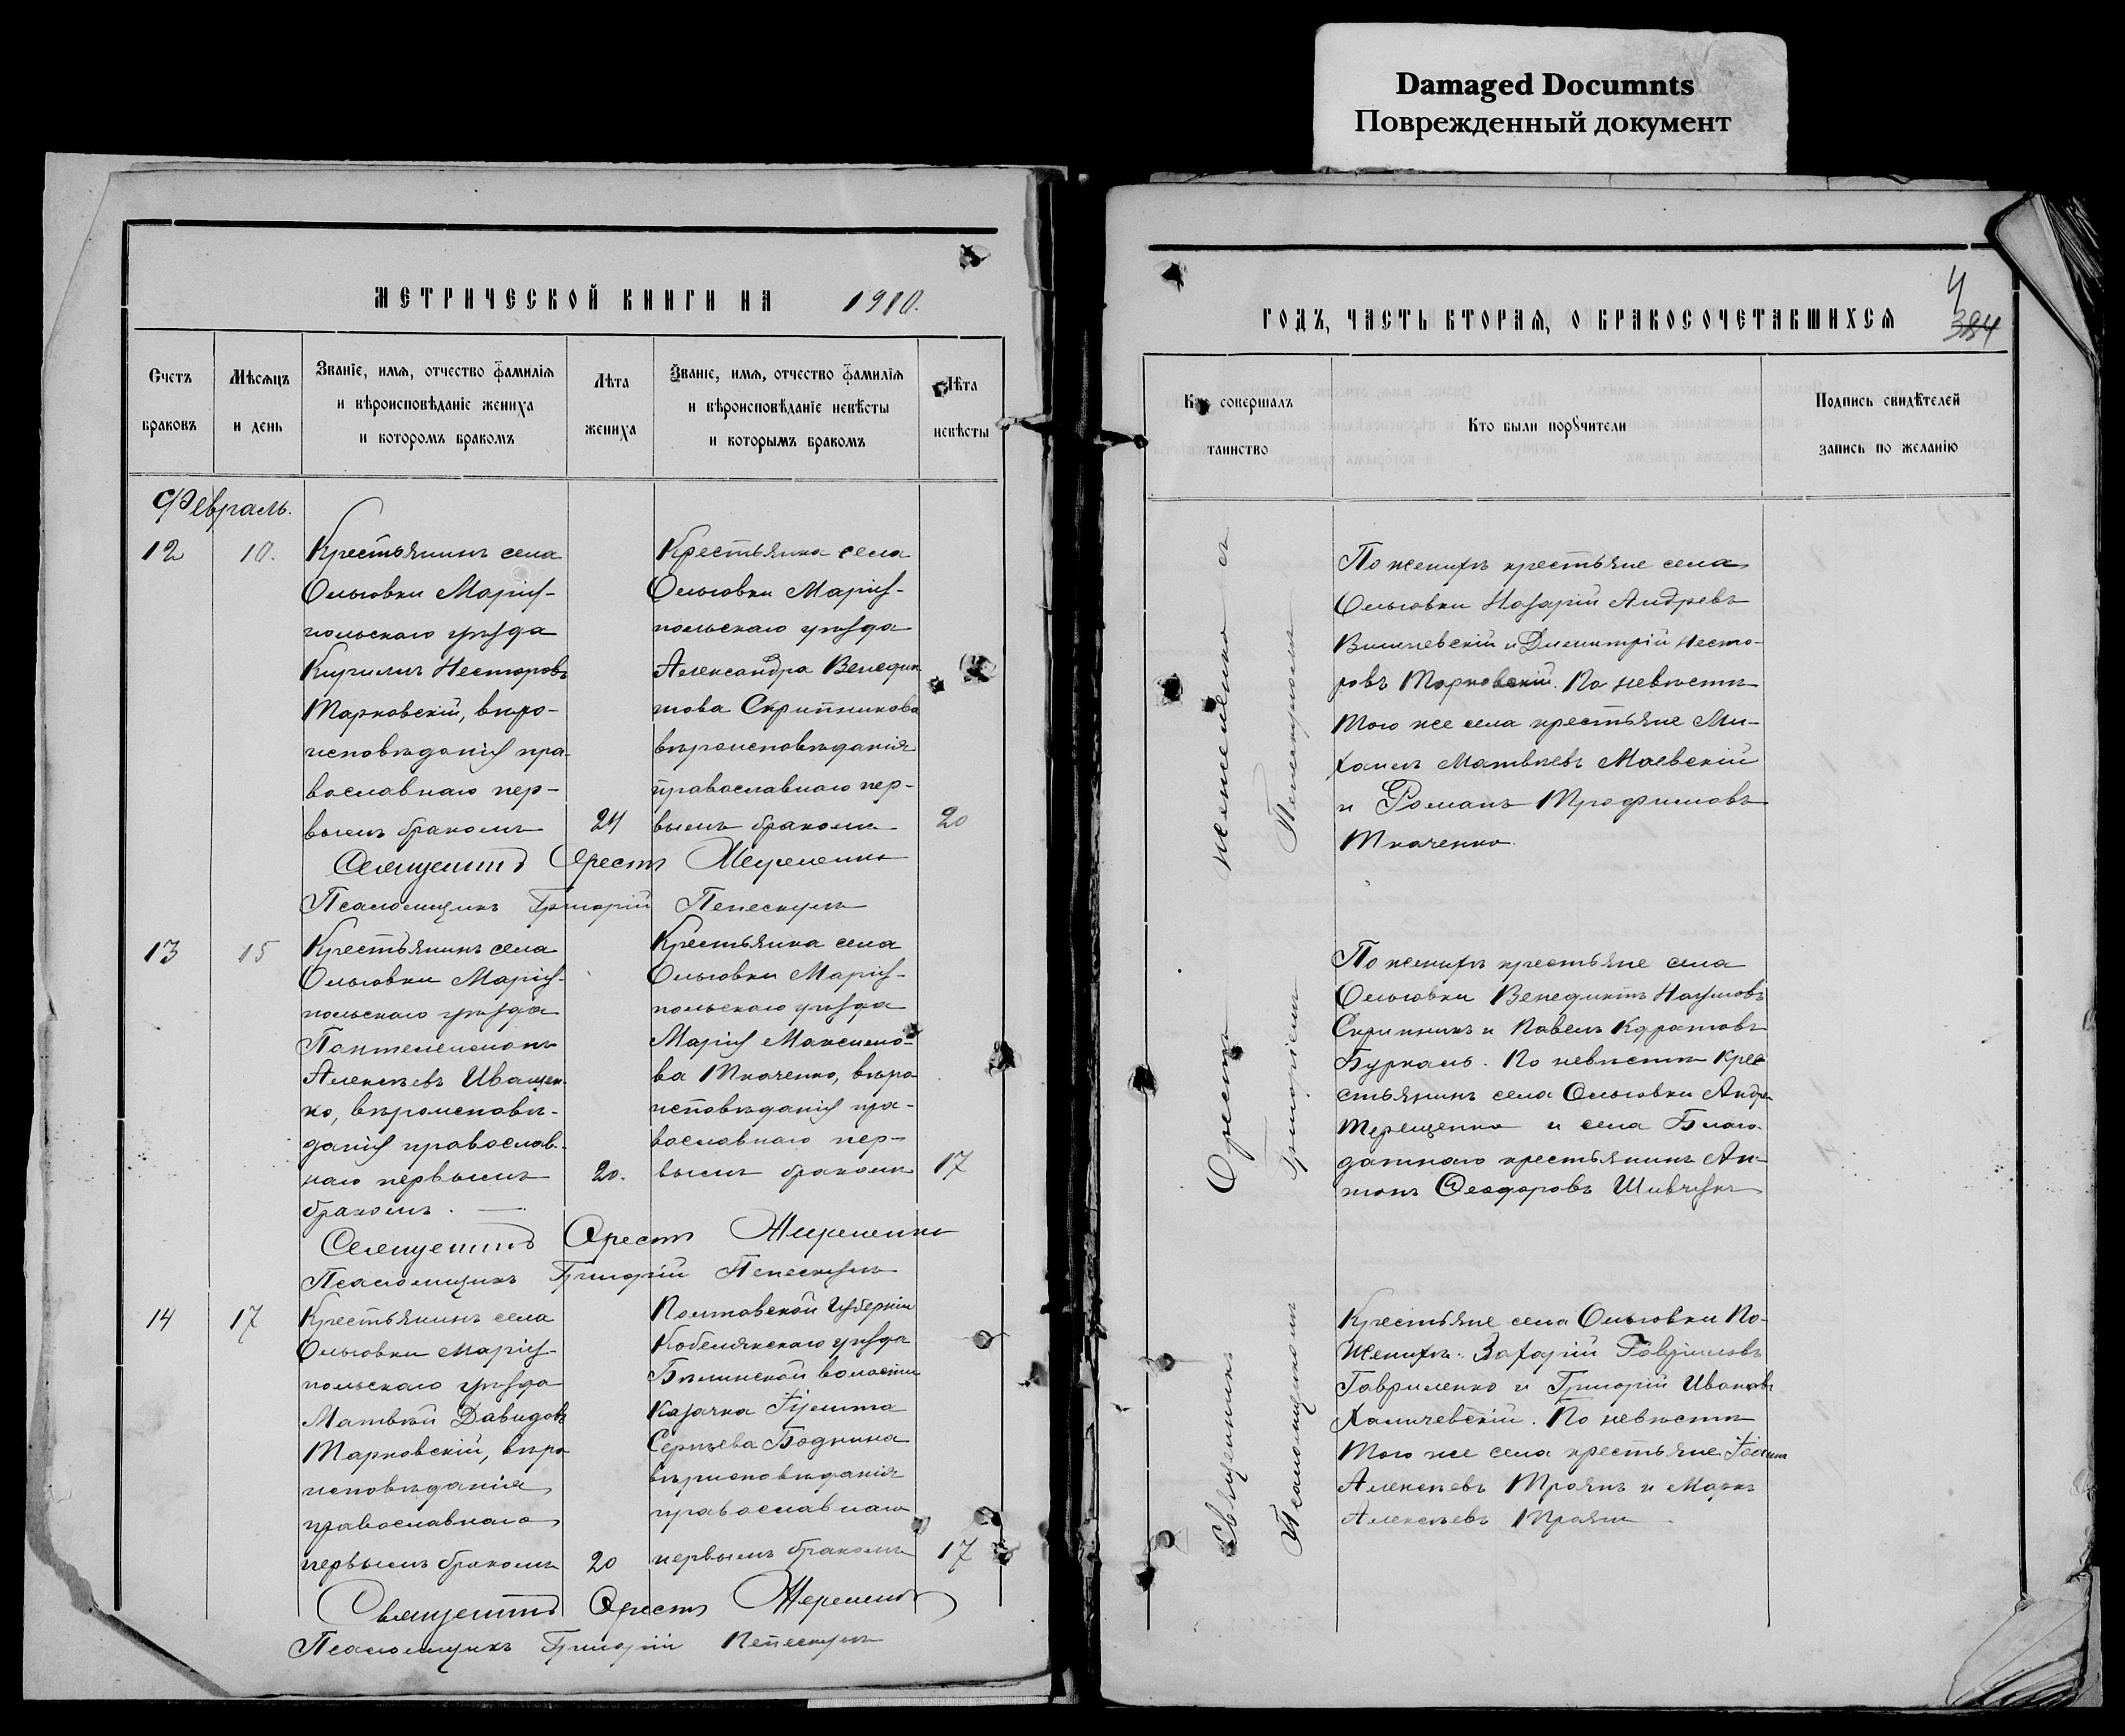 Damaged Documnts
Поврежденный документ
МЕТРИЧЕСКОЙ КНИГИ НА 1910.
Счетъ браковъ
Мѣсяцъ и день
Званіе, имя, отчество фамилія
и вѣроисповѣданіе жениха
и которомъ бракомъ
Лѣта жениха
Званіе, имя, отчество фамилія
и вѣроисповѣданіе невѣсты
и которымъ бракомъ
Лѣта невѣсты
Февраль.
12
10.
Крестьянинъ села
Ольговки Маріу-
польскаго уѣзда
Кириллъ Несторовъ
Марковскій, вѣро-
исповѣданія пра-
вославнаго пер-
вымъ бракомъ
24
Крестьянка села
Ольговки Маріу-
польскаго уѣзда
Александра Венедик
това Скрипникова
вѣроисповѣданія
православнаго пер-
вымъ бракомъ
20
Священникъ Орестъ
Псаломщикъ Григорій
13
15
Крестьянинъ села
Ольговки Маріу-
польскаго уѣзда
Пантелеимонъ
Алексѣевъ Иващен-
ко, вѣроисповѣ-
данія православ-
наго первымъ
бракомъ.
20.
Крестьянка села
Ольговки Маріу-
польскаго уѣзда
Марія Максимо-
ва Ткаченко, вѣро-
исповѣданія пра-
вославнаго пер-
вымъ бракомъ
17
Священникъ Орестъ
Псаломщикъ Григорій
14
17
Крестьянинъ села
Ольговки Маріу-
польскаго уѣзда
Матвѣй Давидовъ
Марковскій, вѣро
исповѣданія
православнаго
первымъ бракомъ
20
Полтавской губерніи
Кобелякскаго уѣзда
Бѣлицской волости
Казачка
Сергѣева Боднина
вѣроисповѣданія
православнаго
первымъ бракомъ
17
Священникъ Орестъ
Псаломщикъ Григорій
ГОДЪ, ЧАСТЬ ВТОРАЯ, О БРАКОСОЧЕТАВШИХСЯ
4
384
Кто совершалъ таинство
Кто были поручители
Подпись свидѣтелей
запись по желанію
Священникъ Орестъ съ
Псаломщикомъ Григоріемъ
По женихѣ крестьяне села
Ольговки Назарій Андреевъ
и Димитрій Несто-
ровъ Марковскій. По невѣстѣ
того же села крестьяне Ми-
хаилъ Матвѣевъ Маевскій
и Романъ Трофимовъ
Ткаченко.
По женихѣ крестьяне села
Ольговки Венедиктъ Наумовъ
Скрипникъ и Павелъ
Буркалъ. По невѣстѣ кре-
стьянинъ села Ольговки Андрей
Терещенко и села Благо-
датнаго крестьянинъ Ан-
тонъ Ѳеодоровъ Шивчукъ
Крестьяне села Ольговки По
женихѣ: Захарій Гавриловъ
Гавриленко и Григорій Ивановъ
. По невѣстѣ
того же села крестьяне
Алексѣевъ Троянъ и Маркъ
Алексѣевъ Троянъ.